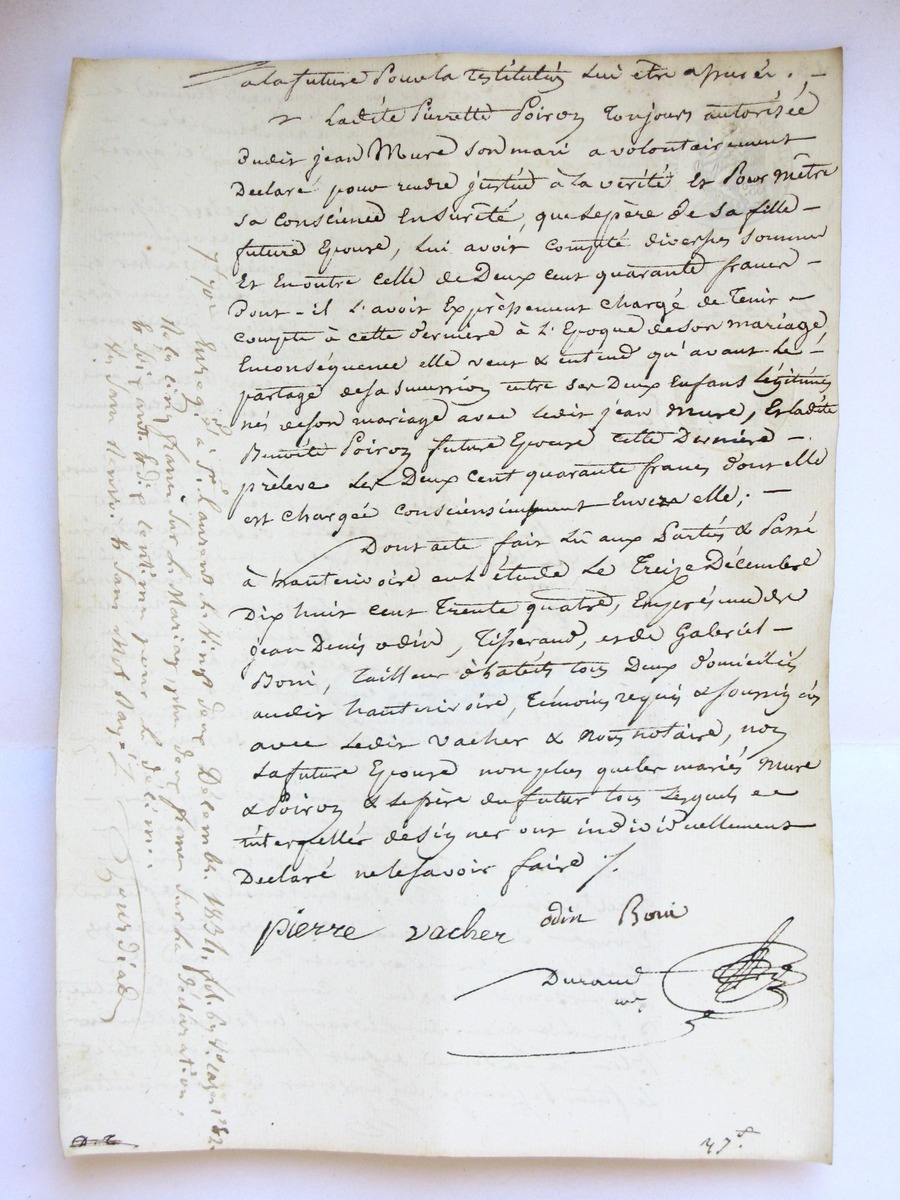 a la future Pour la restitution lui etre assurée. —
Ladite Pierrette Poizon Toujours autorisée
dudit jean Mure son mari a volontairement
Declaré pour rendre justice à la vérité Et Pour mêtre
sa conscience En sureté, que le père de sa fille —
future Epouse, lui avoit compté diverses sommes
Et En outre celle de Deux cent quarante francs —
Dont - il l'avoit Expressement chargé de Tenir
compte à cette dernière à l'Epoque de son mariage,
En conséquence elle veut & entend qu'avant le —
partage de sa succession entre ses Deux Enfans légitimes
nés de son mariage avec ledit jean Mure, Et ladite
Benoite Poizon future Epouse cette Dernière —
prèleve les Deux cent quarante francs dont elle
est chargée consciensieusement Envers elle; —
Dont acte fait lu aux Parties & Passé
à hauterivoire en l'étude Le Treize Décembre
Dix huit cent Trente quatre, En présence de
jean Denis odin, Tisserand, et de Gabriel —
Boni, Tailleur d'habits tous Deux domiciliés
audit hauterivoire, Témoins requis & soussignés
avec Ledit Vacher & Nous notaire, non
La future Epouse non plus que les mariés Mure
& Poizon & le père du futur tous lesquels
interpellés de signer ont individuellement
Declaré ne le savoir faire ./.
pierre vacher odin Boni
Durand
nre
Enregé à St. Laurent le Vingt deux Décembre 1834, fol. 67 Vo. case 1 & 2.
Reçu cinq francs sur le Mariage, plus deux francs sur la Déclaration,
& soixante & dix centimes pour le décime.
Gourdiat
37 d.